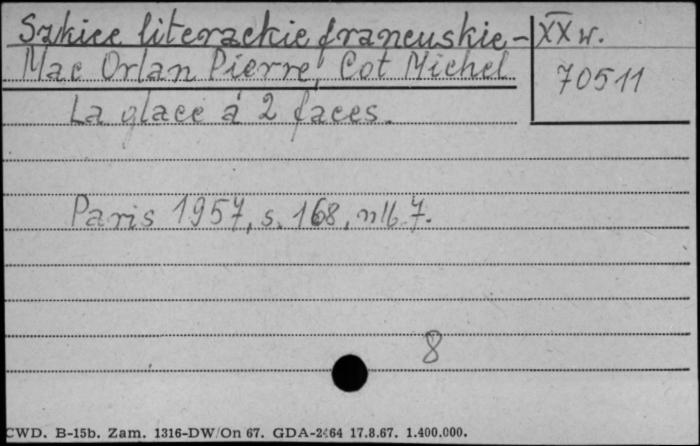 Szkice literackie francuskie - XX w.
Mac Orlan Pierre, Cot Michel
70511
La glace à 2 faces.
Paris 1957, s. 168, nlb. 7.
8
CWD. B-15b. Zam. 1316-DW/On 67. GDA-2464 17.8.67. 1.400.000.